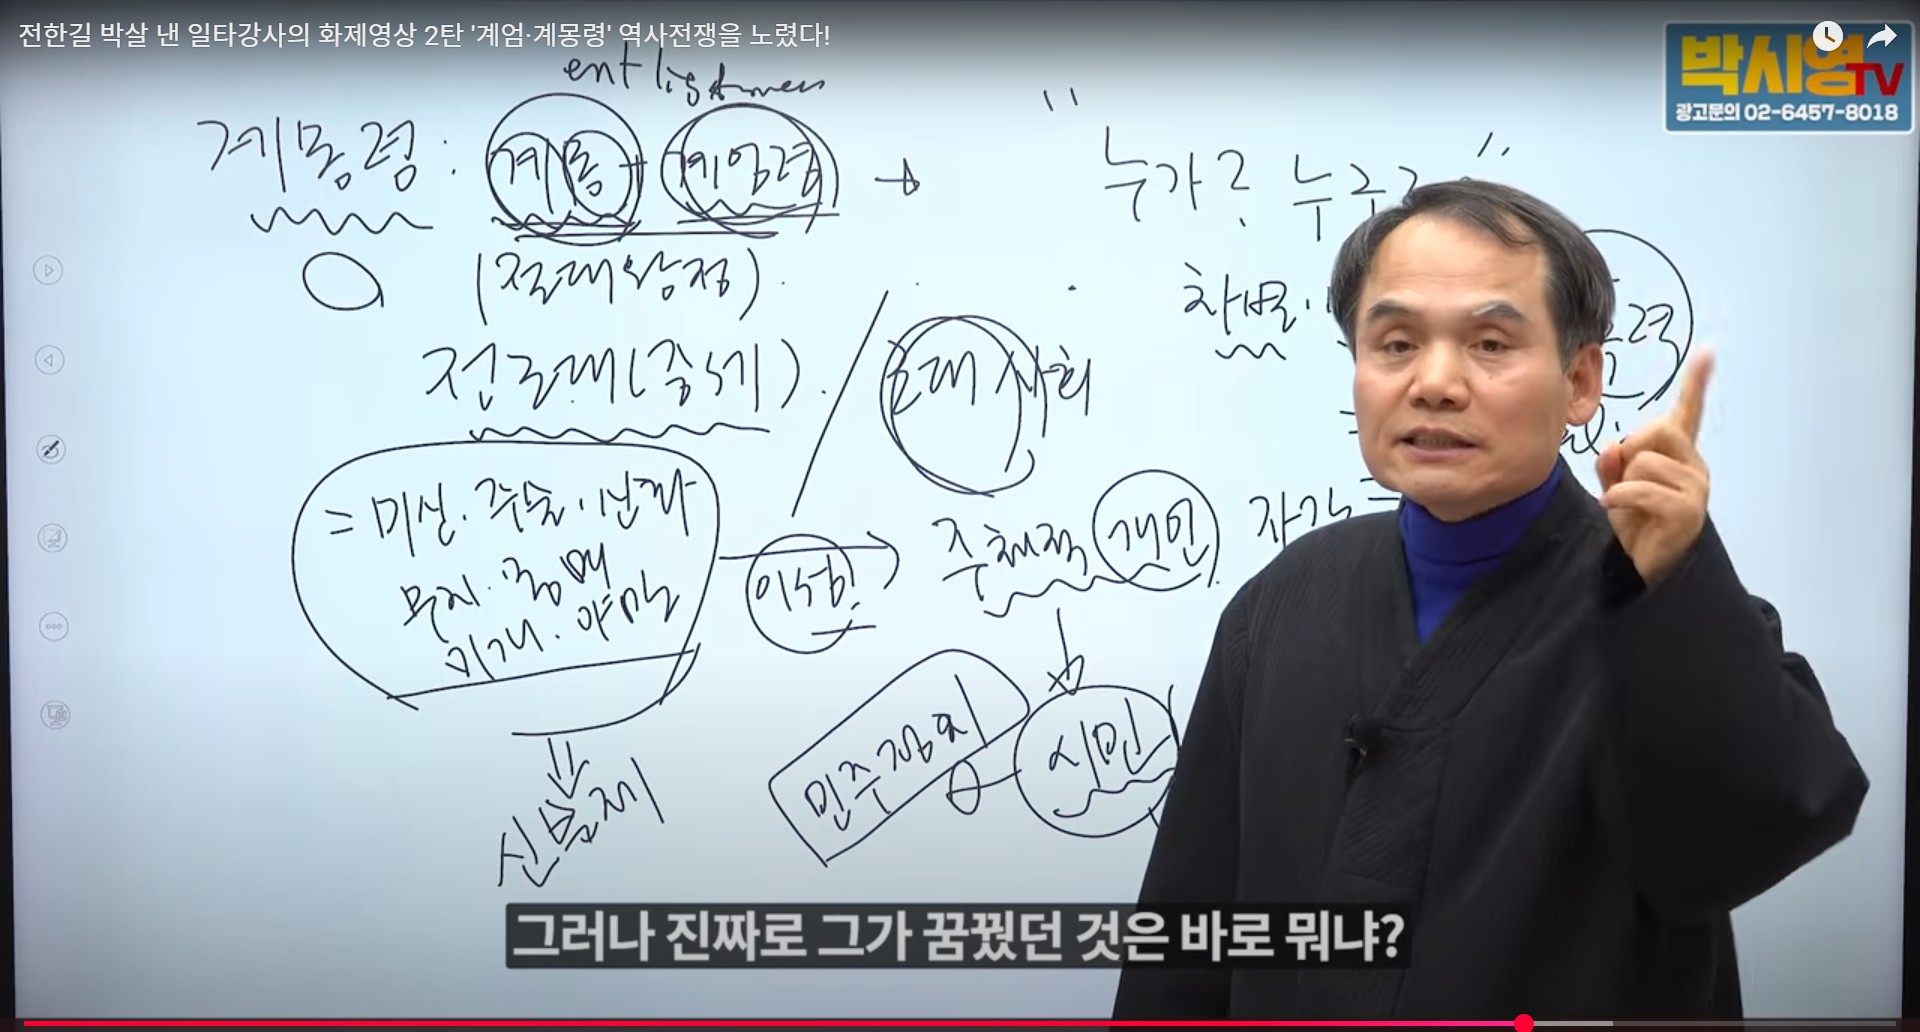 전한길 박살 낸 일타강사의 화제영상 2탄 '계엄·계몽령' 역사전쟁을 노렸다!
박시영TV
광고문의 02-6457-8018
계몽령 : 계몽 + 계엄령 → "누가? 누구
(절대왕정)
차별·
전근대(중세) / 근대 사회
= 미신·주술·
무지·몽매
미개·야만
이성
주체적 개인
신분제
민주정치
시민
그러나 진짜로 그가 꿈꿨던 것은 바로 뭐냐?